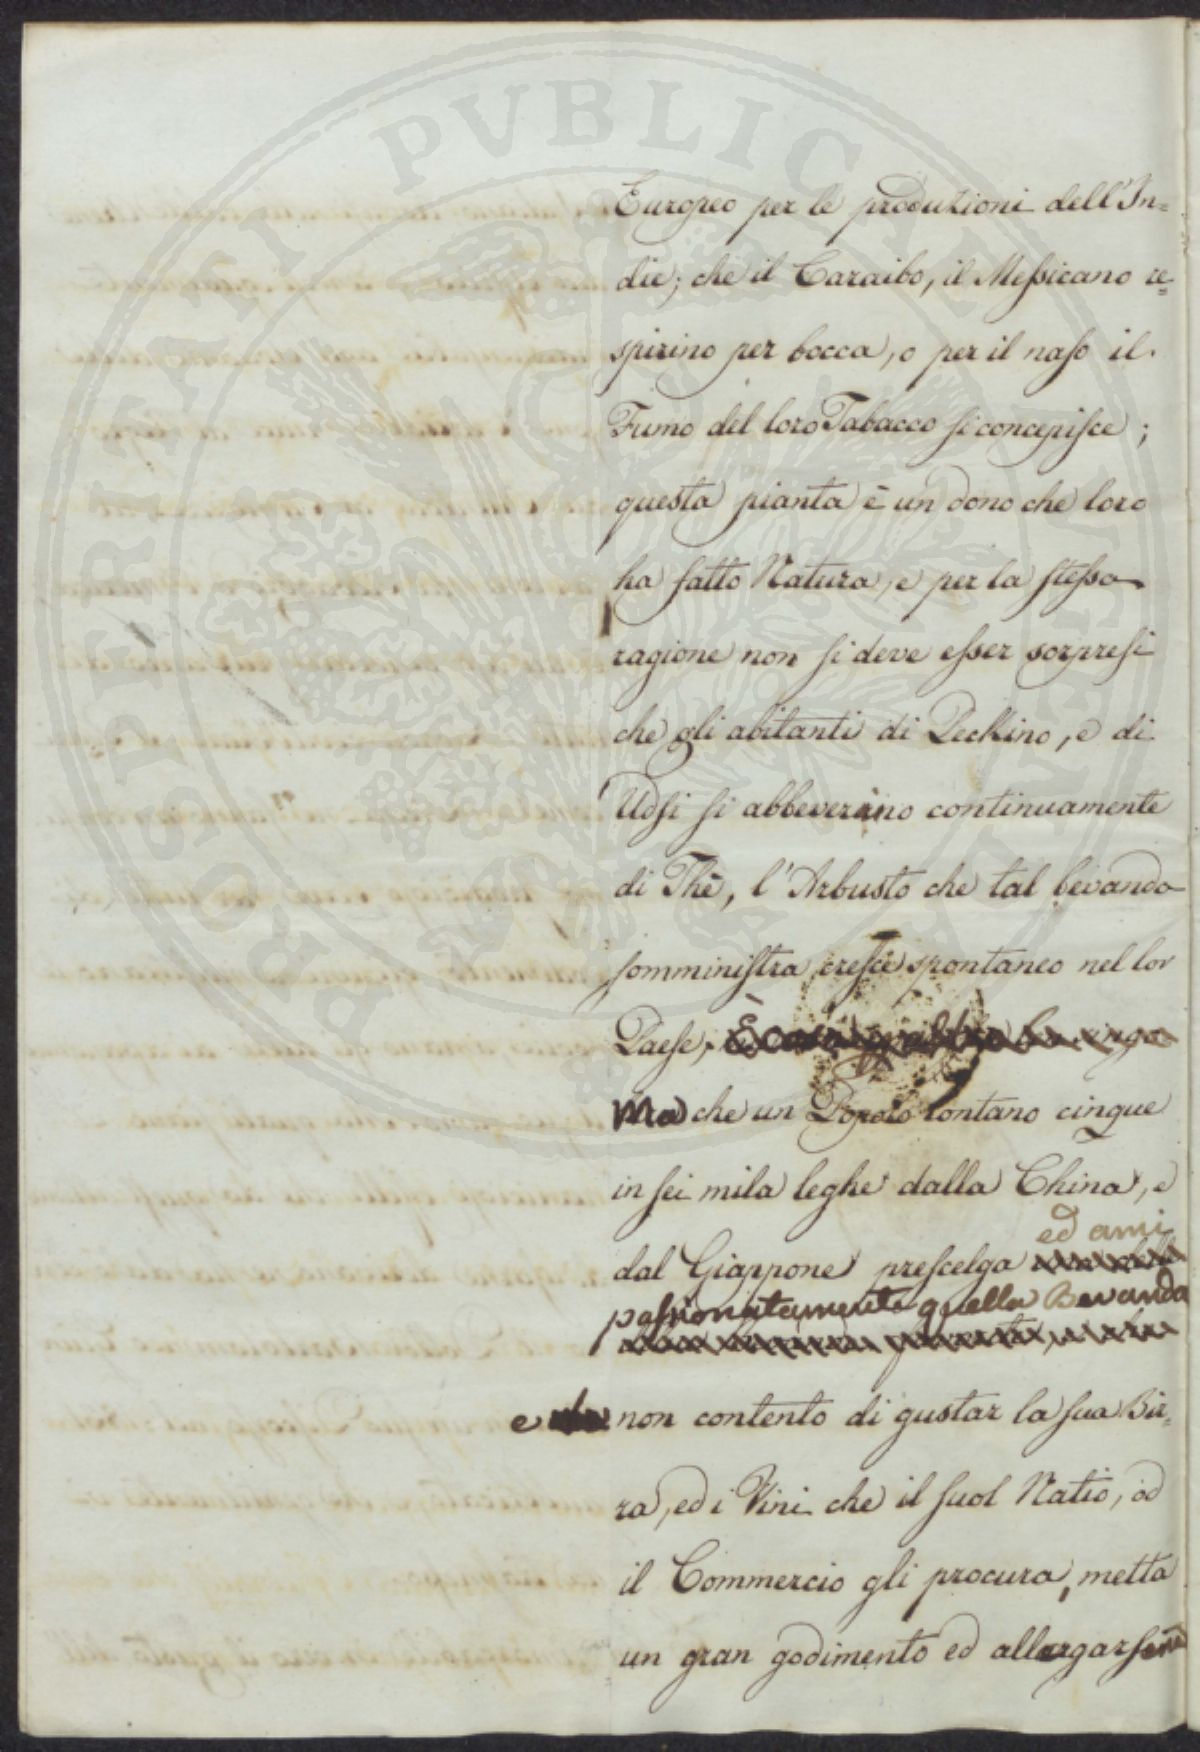 Europeo per le produzioni dell'In=
die; che il Caraibo, il Messicano re=
spirino per bocca, o per il naso il
Fumo del loro Tabacco si concepisce;
questa pianta è un dono che loro
ha fatto Natura, e per la stessa
ragione non si deve esser sorpresi
che gli abitanti di Peckino, e di
Udsi si abbeverino continuamente
di Thè, l'Arbusto che tal bevanda
somministra cresce spontaneo nel lor
Paese,
Ma che un Popolo lontano cinque
in sei mila leghe dalla China, e
ed ami
dal Giappone prescelga
passionatamente quella Bevanda
e non contento di gustar la sua Bir=
ra, ed i Vini che il suol Natio, od
il Commercio gli procura, metta
un gran godimento ed allargarsene
PROSPERITATI PVBLICAE